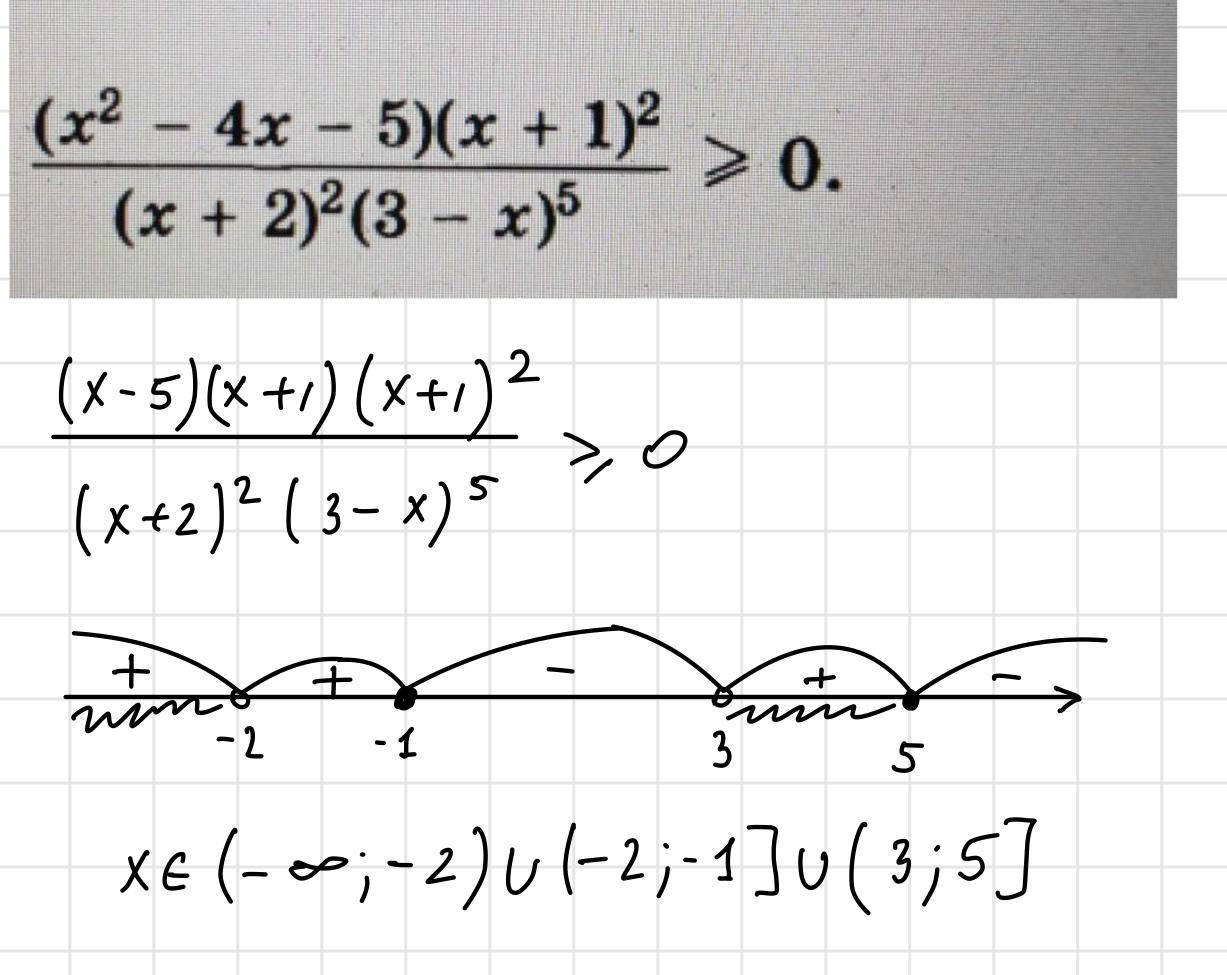 (x² − 4x − 5)(x + 1)² / (x + 2)²(3 − x)⁵ ⩾ 0.
(x-5)(x+1)(x+1)² / (x+2)²(3-x)⁵ ⩾ 0
+ + - + -
-2 -1 3 5
x∈(-∞;-2)∪(-2;-1]∪(3;5]